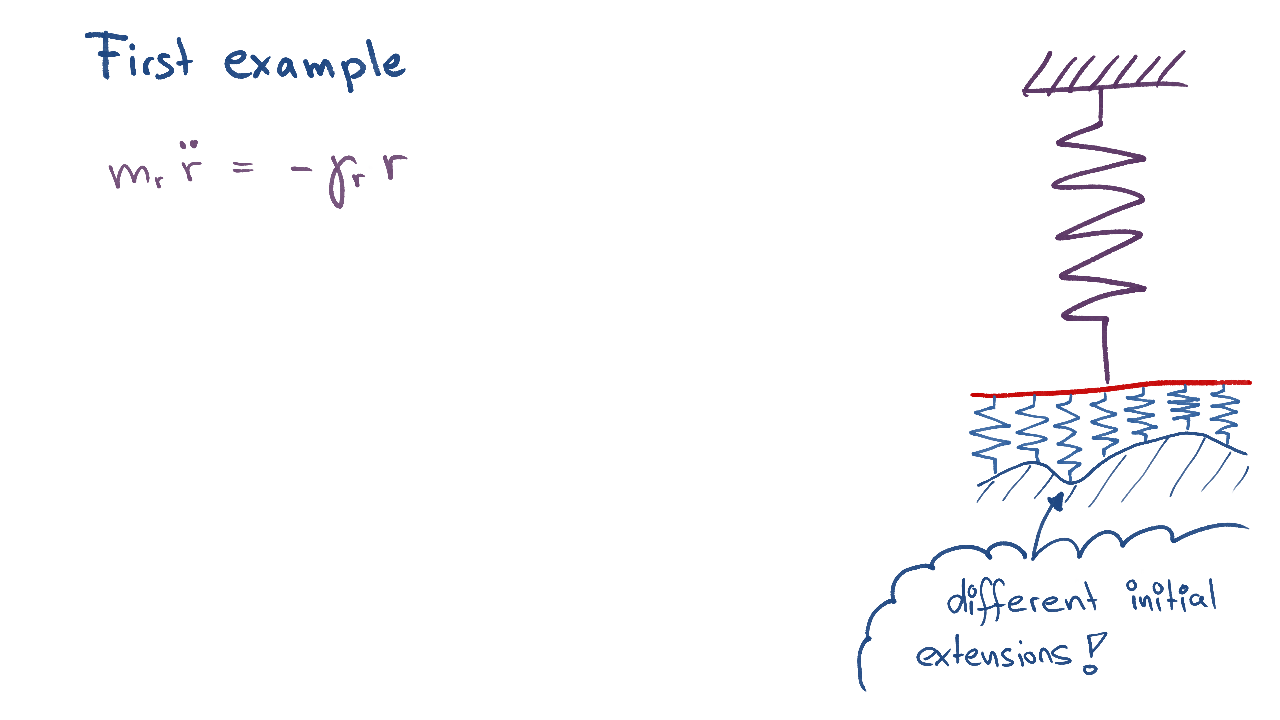 First example
mᵣ r̈ = - γᵣ r
different initial
extensions!